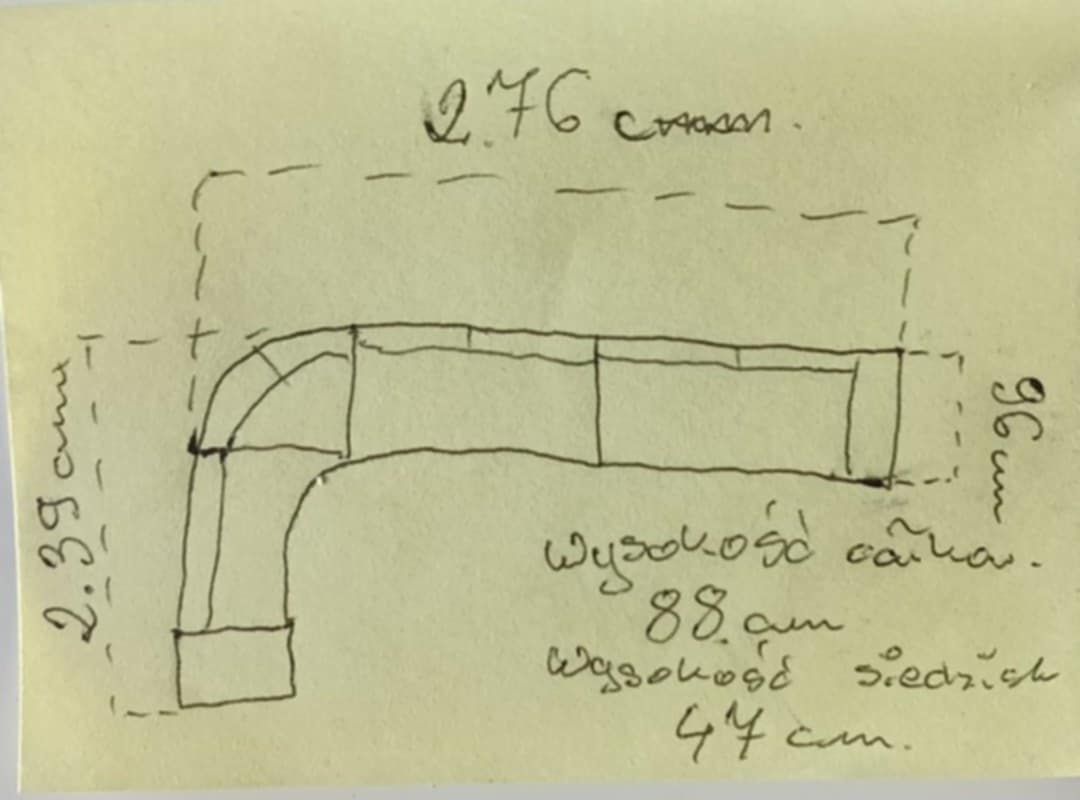 2.76 cm.
2.39 cm
96 cm
wysokość całkow.
88 cm
wysokość siedzisk
47 cm.